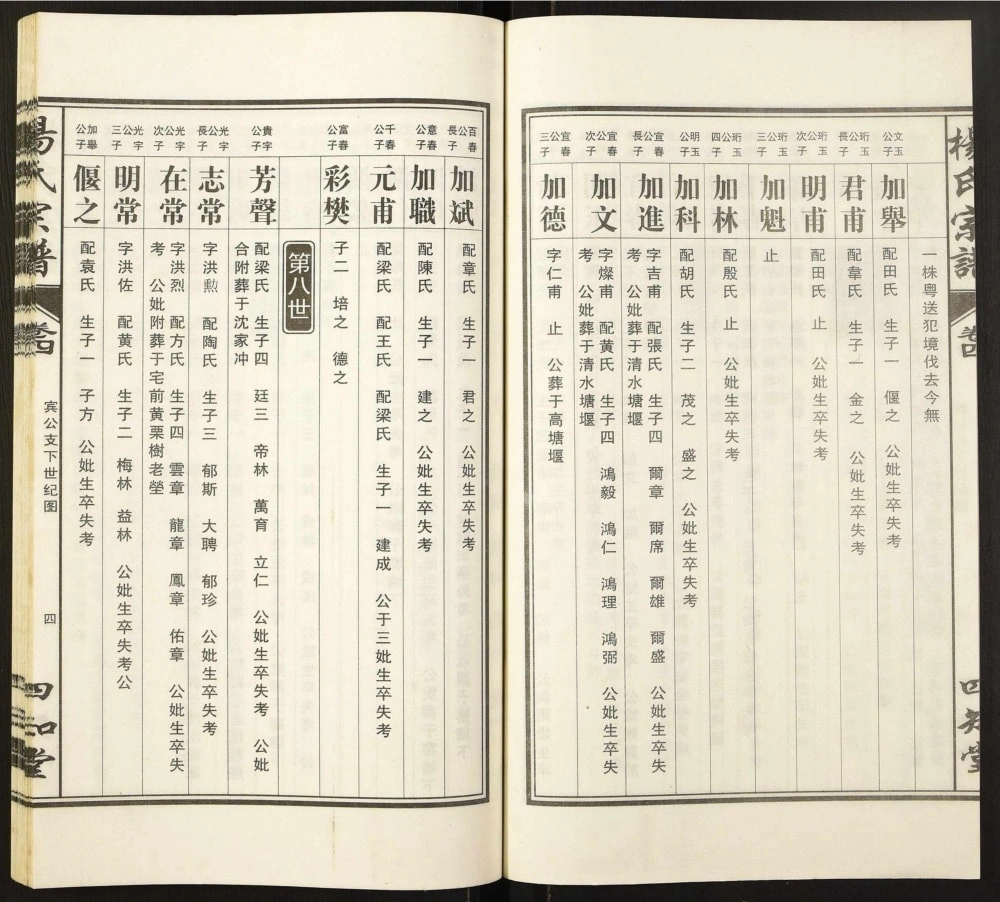 楊氏宗譜
卷四
四知堂
一株粵送犯境伐去今無
文玉公五子
加舉
配田氏 生子一 偃之 公妣生卒失考
珩玉公長子
君甫
配韋氏 生子一 金之 公妣生卒失考
珩玉公次子
明甫
配田氏 止 公妣生卒失考
珩玉公三子
加魁
止
珩玉公四子
加林
配殷氏 止 公妣生卒失考
明玉公子
加科
配胡氏 生子二 茂之 盛之 公妣生卒失考
宣春公長子
加進
字吉甫 配張氏 生子四 爾章 爾席 爾雄 爾盛 公妣生卒失
考 公妣葬于清水塘堰
宣春公次子
加文
字燦甫 配黃氏 生子四 鴻毅 鴻仁 鴻理 鴻弼 公妣生卒失
考 公妣葬于清水塘堰
宣春公三子
加德
字仁甫 止 公葬于高塘堰
百春公長子
加斌
配章氏 生子一 君之 公妣生卒失考
意春公子
加職
配陳氏 生子一 建之 公妣生卒失考
千春公子
元甫
配梁氏 配王氏 配梁氏 生子一 建成 公于三妣生卒失考
富春公子
彩樊
子二 培之 德之
第八世
貴字公子
芳聲
配梁氏 生子四 廷三 帝林 萬育 立仁 公妣生卒失考 公妣
合附葬于沈家冲
光字公長子
志常
字洪勲 配陶氏 生子三 郁斯 大聘 郁珍 公妣生卒失考
光字公次子
在常
字洪烈 配方氏 生子四 雲章 龍章 鳳章 佑章 公妣生卒失
考 公妣附葬于宅前黄栗樹老塋
光字公三子
明常
字洪佐 配黄氏 生子二 梅林 益林 公妣生卒失考公
加舉公子
偃之
配袁氏 生子一 子方 公妣生卒失考
楊氏宗譜
卷四
宾公支下世纪图
四
四知堂